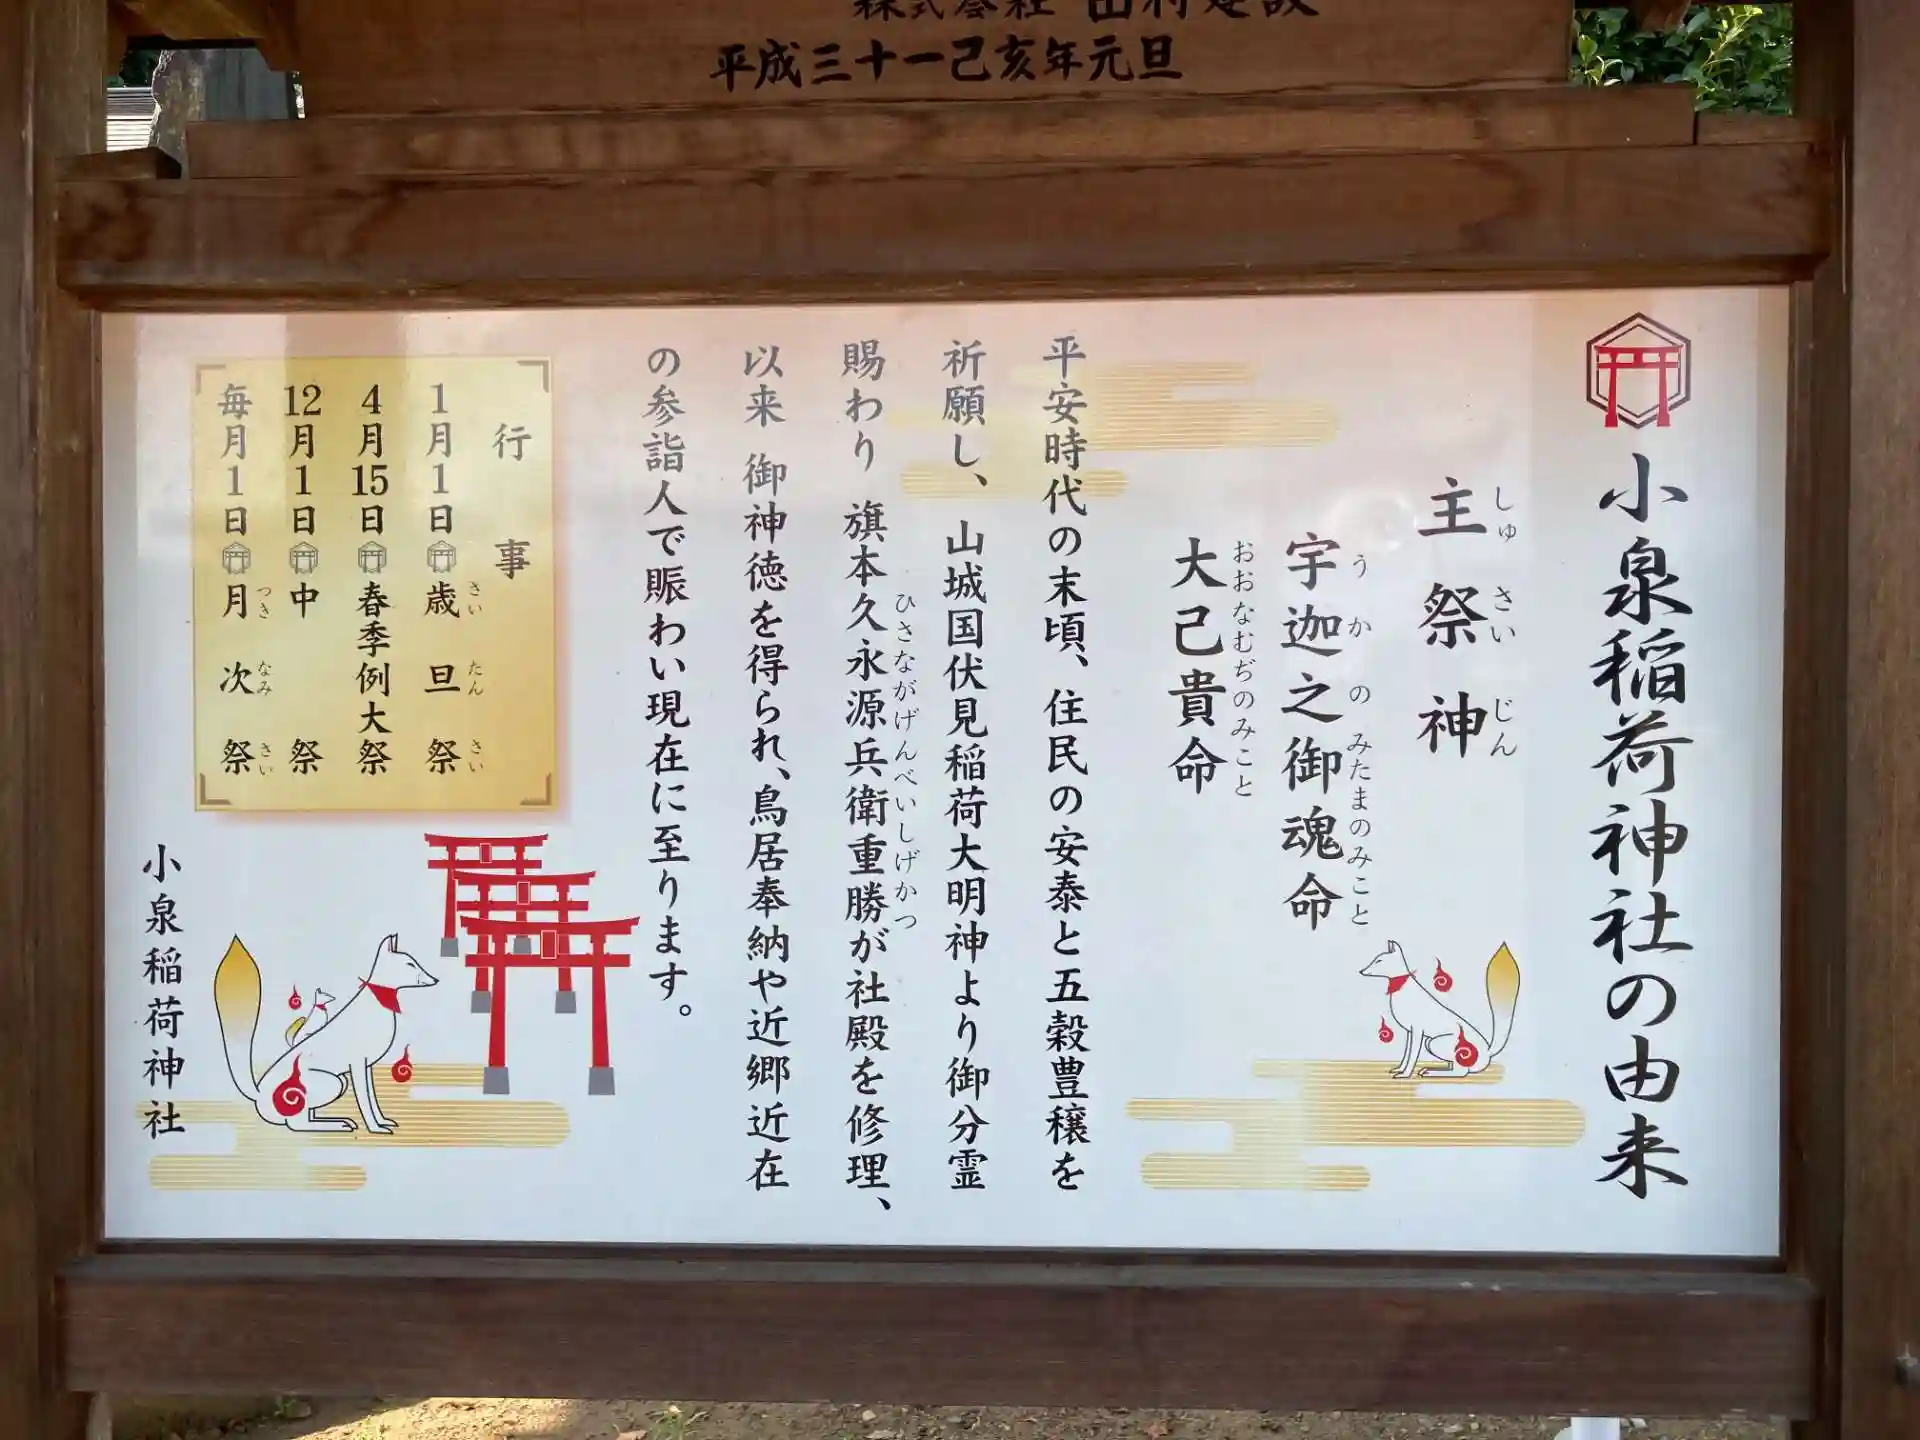 株式会社 田村建設
平成三十一己亥年元旦
小泉稲荷神社の由来
主祭神
しゅさいじん
宇迦之御魂命
うかのみたまのみこと
大己貴命
おおなむぢのみこと
平安時代の末頃、住民の安泰と五穀豊穣を
祈願し、山城国伏見稲荷大明神より御分霊
賜わり 旗本久永源兵衛重勝が社殿を修理、
ひさながげんべいしげかつ
以来 御神徳を得られ、鳥居奉納や近郷近在
の参詣人で賑わい現在に至ります。
行事
1月1日 歳旦祭
さいたんさい
4月15日 春季例大祭
12月1日 中祭
毎月1日 月次祭
つきなみさい
小泉稲荷神社